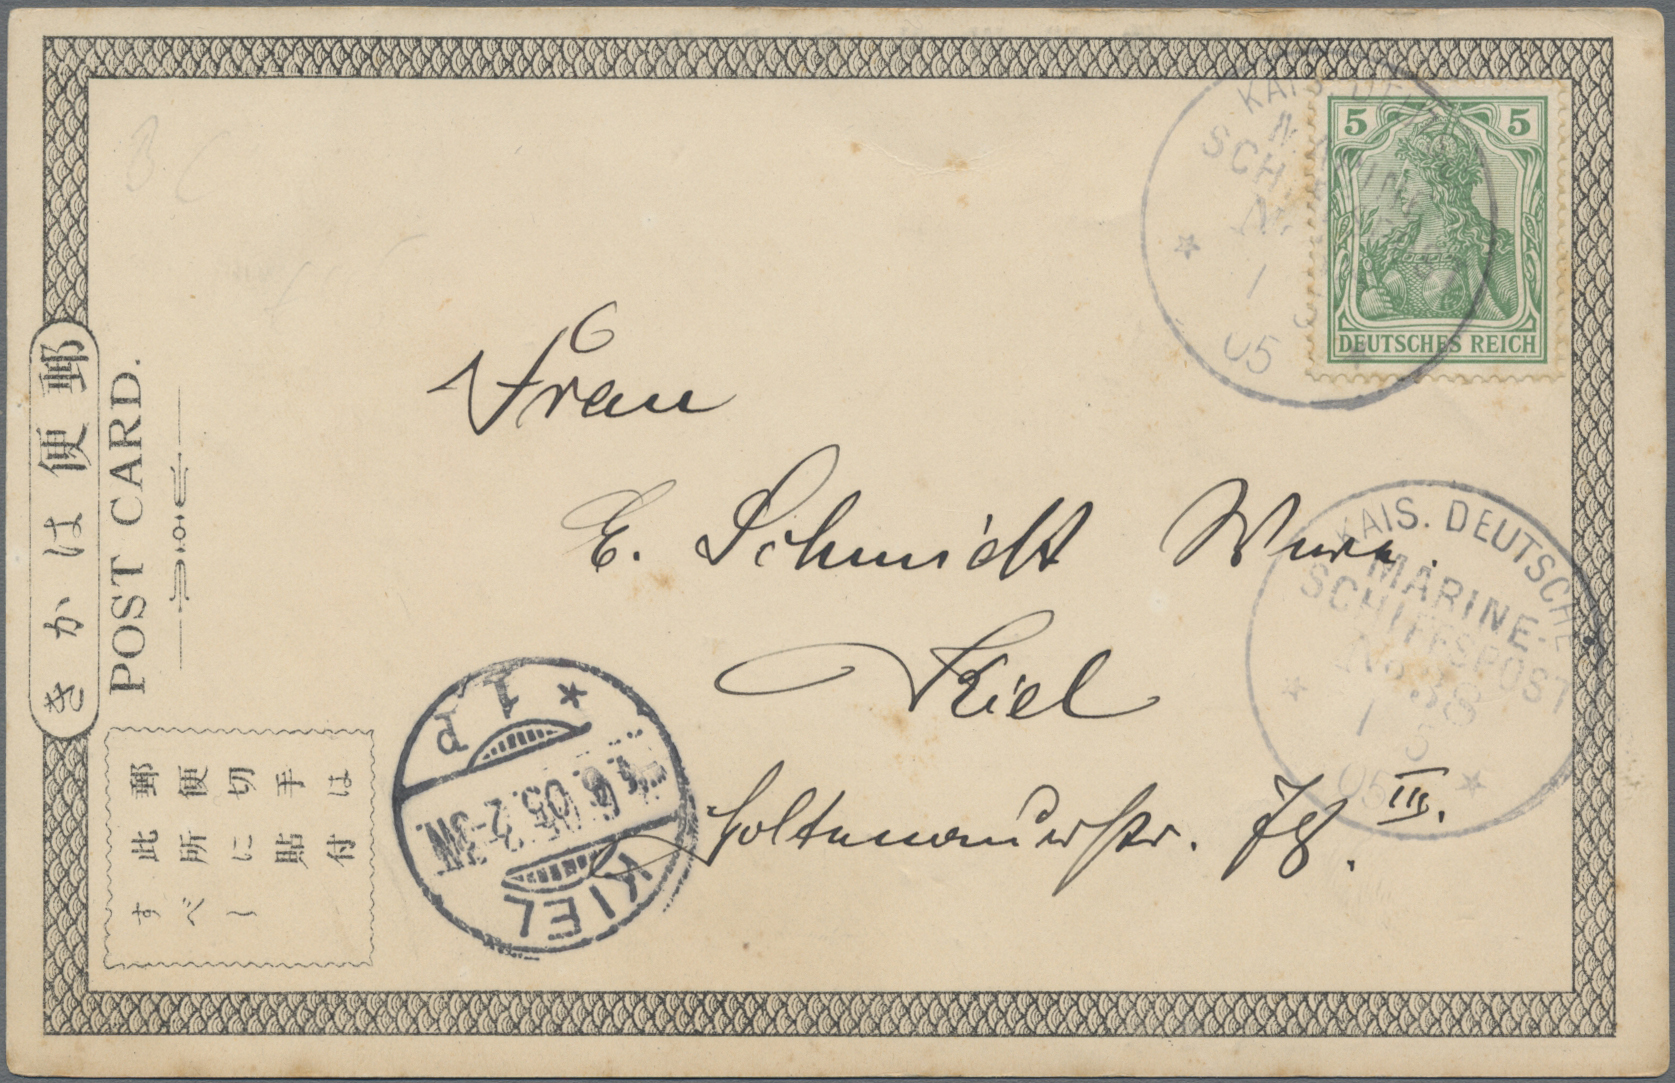 郵便はかき
POST CARD.
郵便切手は
此所に貼付
すべし
5 5
DEUTSCHES REICH
KAIS. DEUTSCHE
MARINE-
SCHIFFSPOST
No 38
1
5
05
KAIS. DEUTSCHE
MARINE
SCH
No
1
05
Frau
E. Schmidt Wwe.
Kiel
III.
KIEL
6.05.2-3N.
1 P